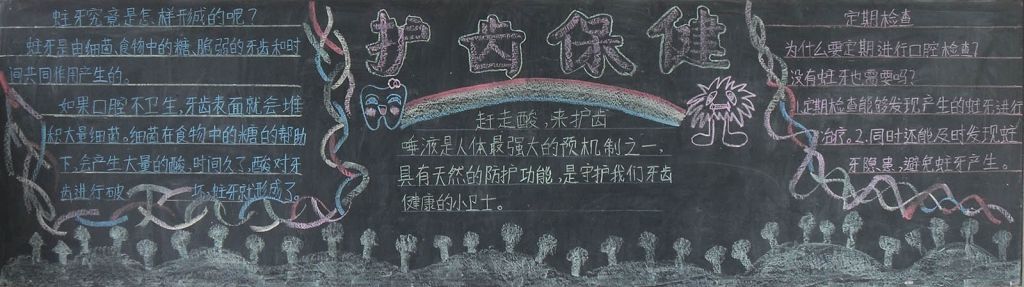 护齿保健
蛀牙究竟是怎样形成的呢?
蛀牙是由细菌、食物中的糖、脆弱的牙齿和时
间共同作用产生的。
如果口腔不卫生,牙齿表面就会堆
积大量细菌。细菌在食物中的糖的帮助
下,会产生大量的酸,时间久了,酸对牙
齿进行破坏,蛀牙就形成了
赶走酸,来护齿
唾液是人体最强大的预机制之一,
具有天然的防护功能,是守护我们牙齿
健康的小卫士。
定期检查
为什么要定期进行口腔检查?
没有蛀牙也需要吗?
1.定期检查能够发现产生的蛀牙进行
治疗。2.同时还能及时发现蛀
牙隐患,避免蛀牙产生。